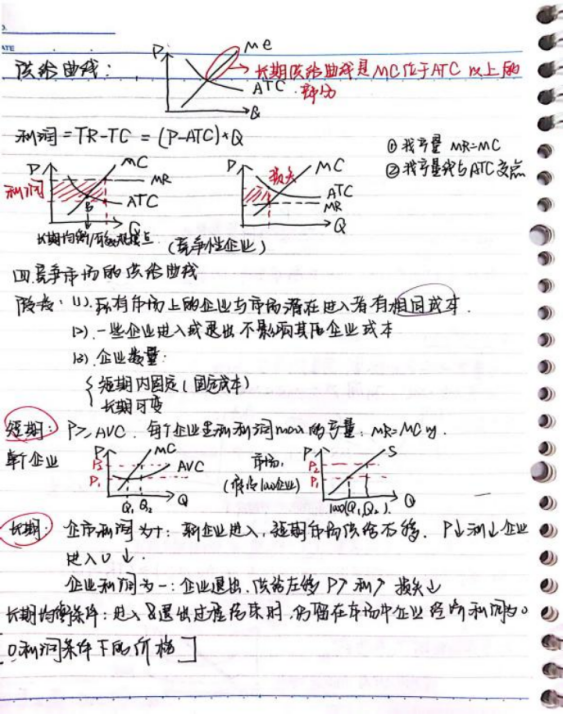 供给曲线:
P
MC
ATC
Q
长期供给曲线是MC位于ATC以上的
部分
利润=TR-TC=(P-ATC)*Q
①找产量 MR=MC
②找产量线与ATC交点
P
MC
MR
ATC
Q
利润
P
MC
损失
ATC
MR
Q
(竞争性企业)
四.竞争市场的供给曲线
假设:(1).所有市场上的企业与市场潜在进入者有相同成本.
(2).一些企业进入或退出不影响其他企业成本
(3).企业数量:
短期内固定(固定成本)
长期可变
短期: P>AVC, 每个企业利润max的产量: MR=MC
单个企业
P
MC
AVC
P₂
P₁
Q₁ Q₂
Q
市场:
P
S
P₂
P₁
Q
长期: 企业利润为+: 新企业进入,短期市场供给右移. P↓利↓企业
进入↓.
企业利润为-:企业退出,供给左移 P↗ 利↗ 损失↓
长期均衡条件:进入&退出过程结束时,仍留在市场中企业经济利润为0
0利润条件下的价格]